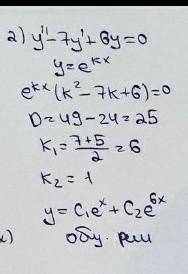 2) y'' - 7y' + 6y = 0
y = e^{kx}
e^{kx}(k² - 7k + 6) = 0
D = 49 - 24 = 25
k₁ = (7+5)/2 = 6
k₂ = 1
y = C₁e^x + C₂e^{6x}
общ. реш